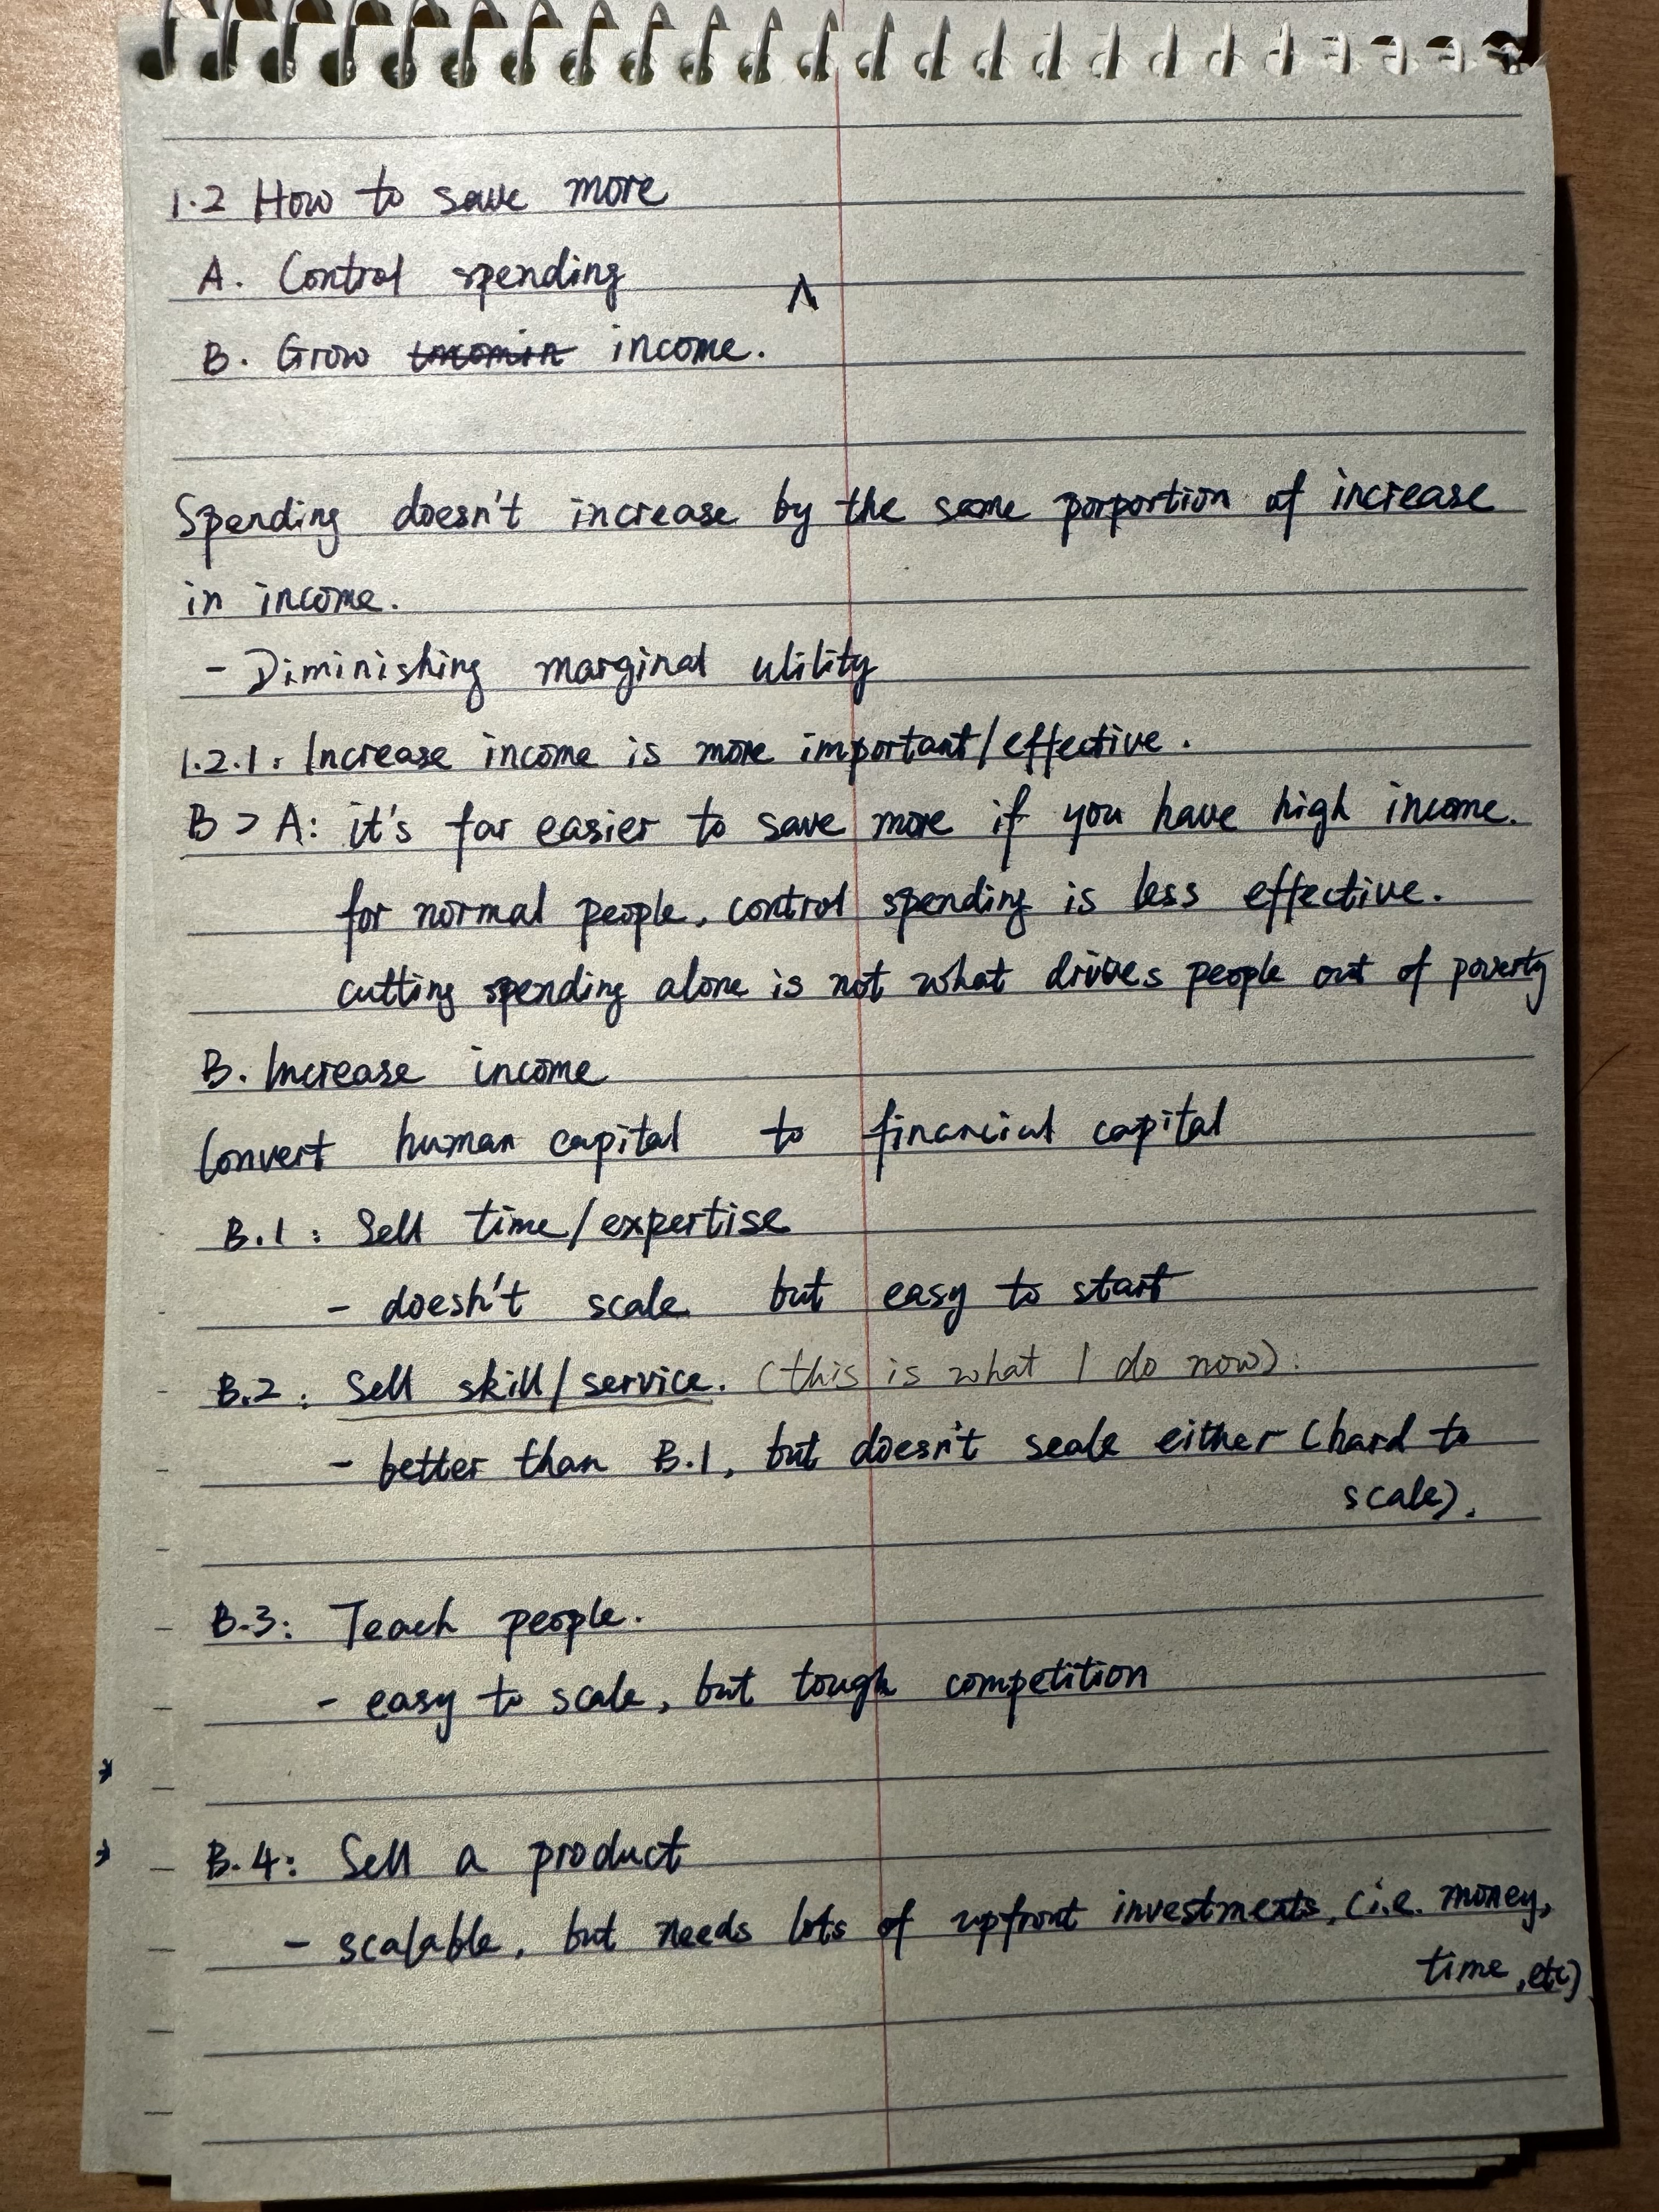 1.2 How to save more
A. Control spending
^
B. Grow incomin income.
Spending doesn't increase by the same porportion of increase
in income.
- Diminishing marginal utility
1.2.1. Increase income is more important/effective.
B > A: it's far easier to save more if you have high income.
for normal people, control spending is less effective.
cutting spending alone is not what drives people out of poverty
B. Increase income
Convert human capital to financial capital
B.1: Sell time/expertise
- doesn't scale but easy to start
B.2: Sell skill/service. (this is what I do now).
- better than B.1, but doesn't scale either (hard to
scale).
B.3: Teach people.
- easy to scale, but tough competition
B.4: Sell a product
- scalable, but needs lots of upfront investments, (i.e. money,
time, etc)